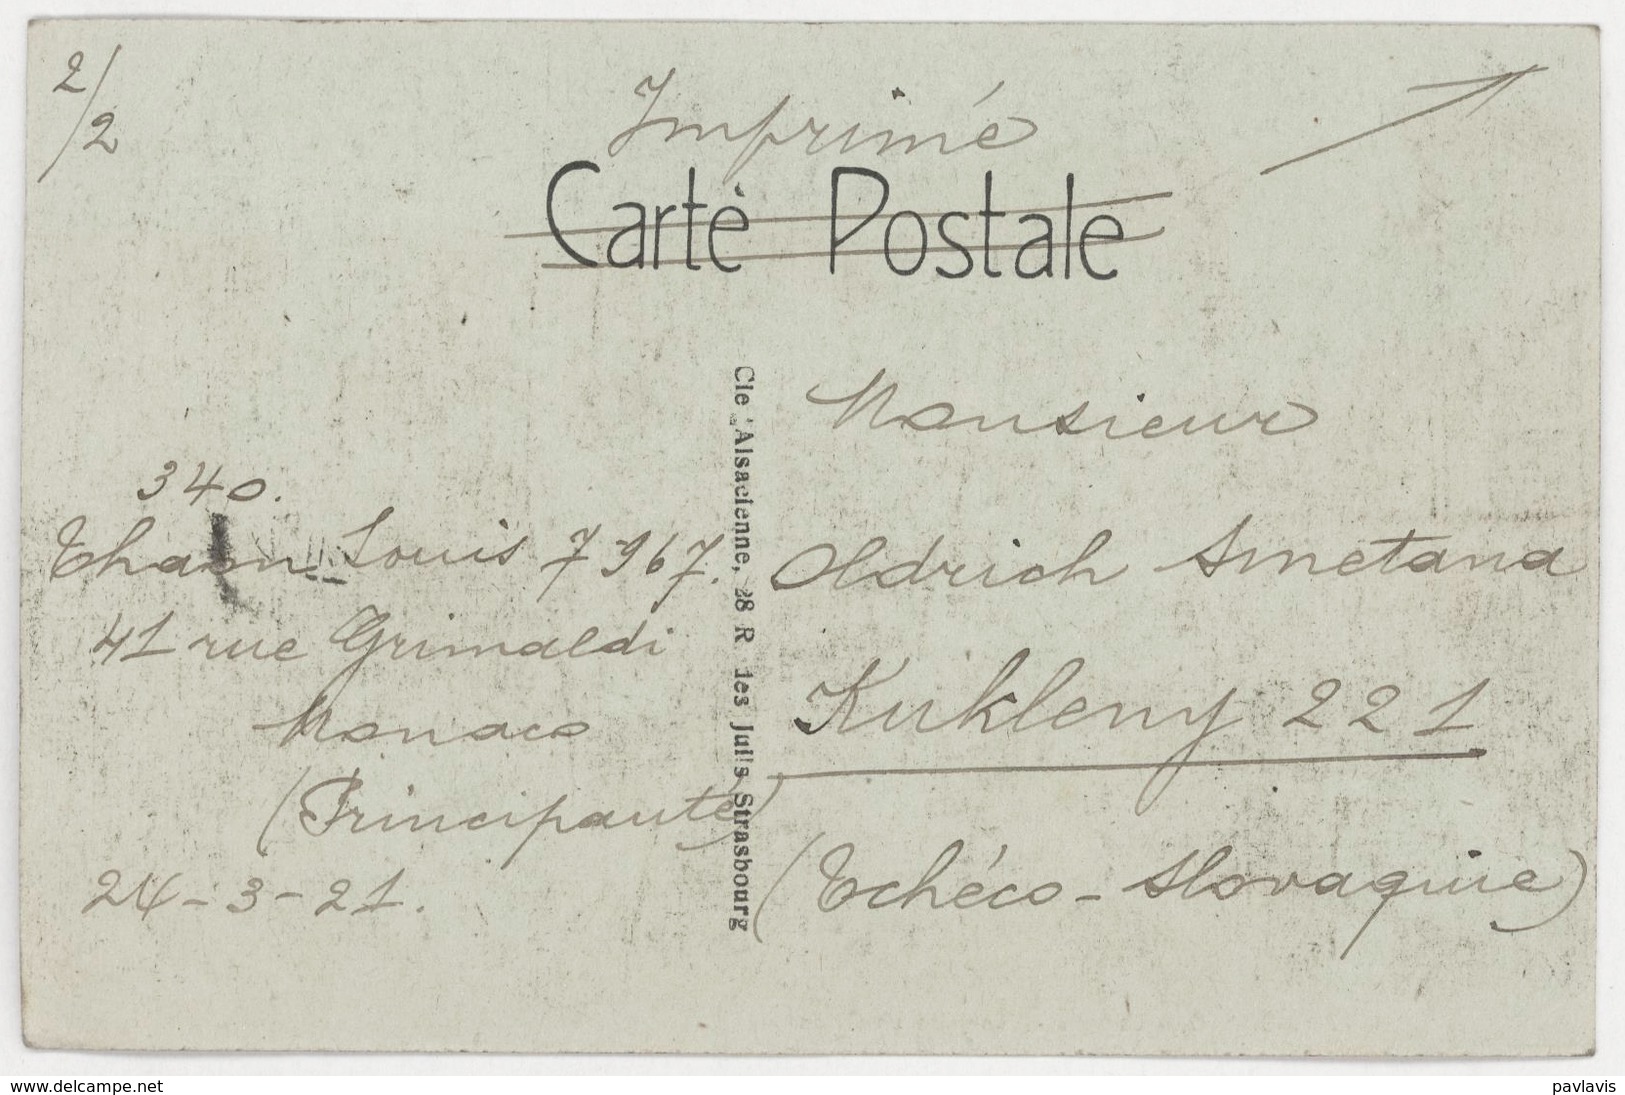 2/2
Imprimé
Carte Postale
340.
Thaon Louis 7967.
41 rue Grimaldi
Monaco
(Principauté)
24-3-21.
Cie Alsacienne, 28 R des Juifs Strasbourg
Monsieur
Oldrich Smetana
Kukleny 221
(Tchéco-Slovaquie)
www.delcampe.net
pavlavis